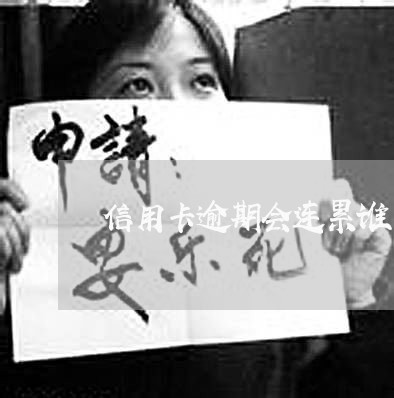 申請：
信用卡逾期会连累谁
乐